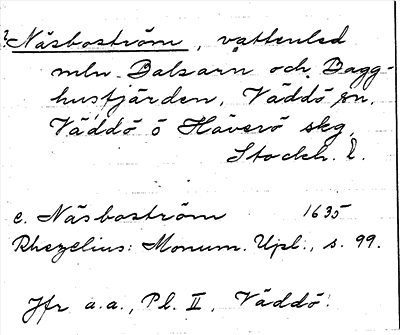 ? Näsboström, vattenled
mln. Balsarn och Bagg-
husfjärden, Väddö sn,
Väddö o Häverö skg,
Stockh. l.
c. Näsboström 1635
Rhezelius: Monum. Upl., s. 99.
Jfr a.a., Pl. II, Väddö.